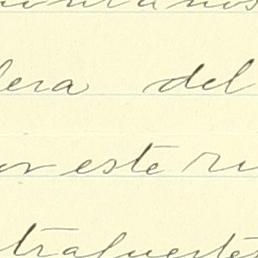 lera del
or este ru
trafuerte